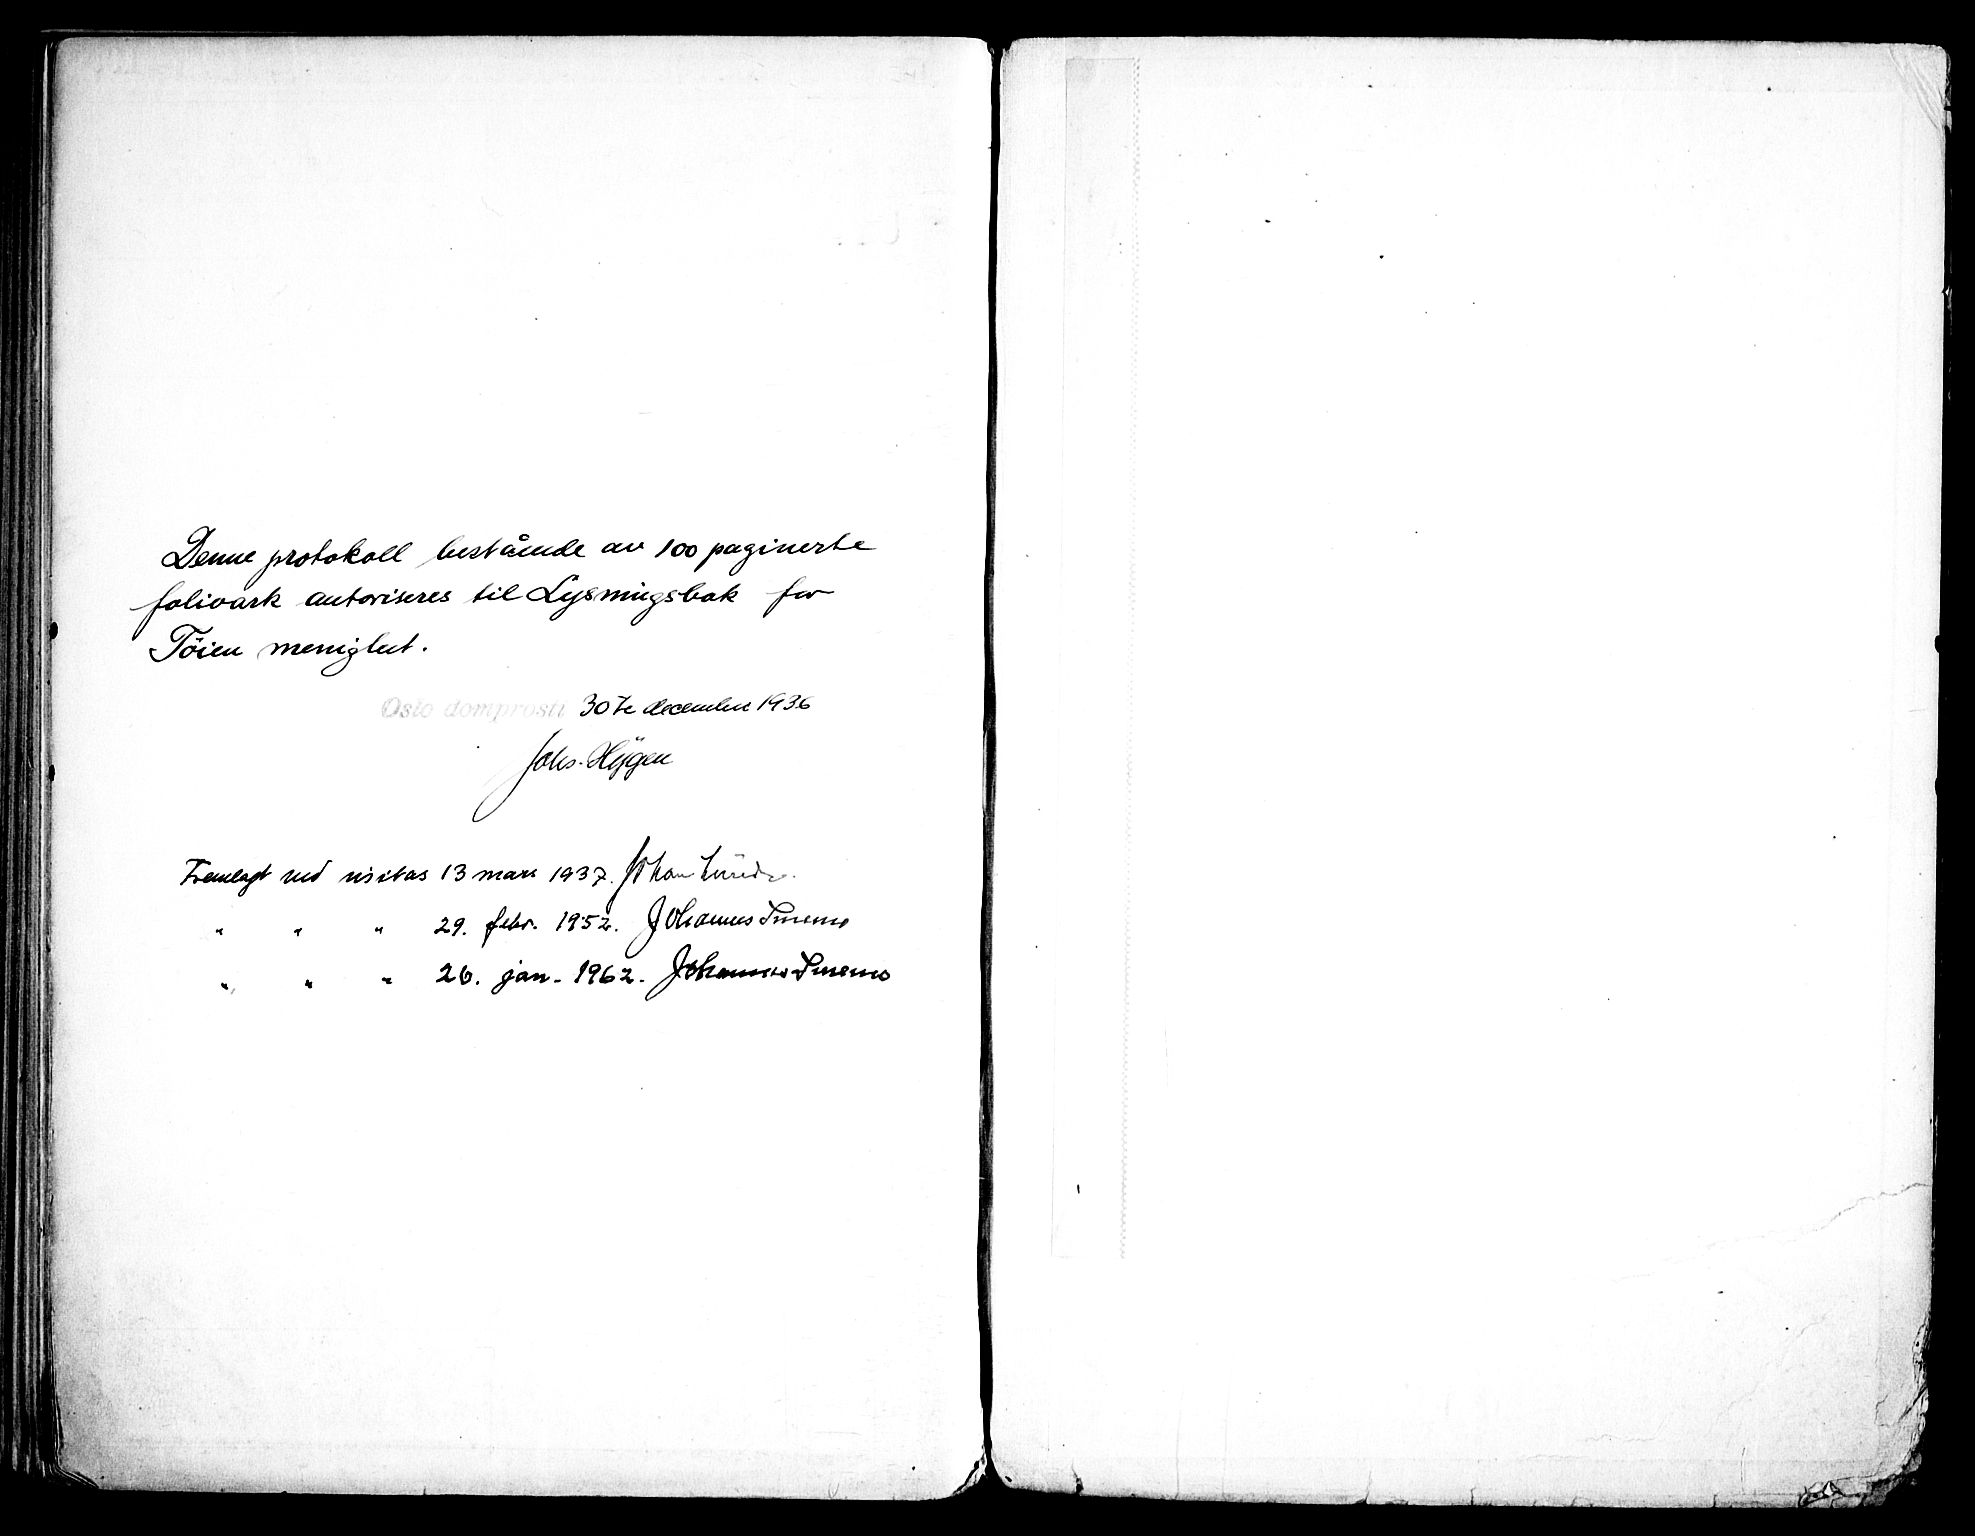 Denne protokoll bestående av 100 paginerte
folioark autoriseres til Lysningsbok for
Tøien menighet.
Oslo domprosti 30te december 1936
Johs. Hygen
Fremlagt ved visitas 13 mars 1937. Johan Lunde.
" " " 29. febr. 1952. Johannes Smemo
" " " 26. jan. 1962. Johannes Smemo